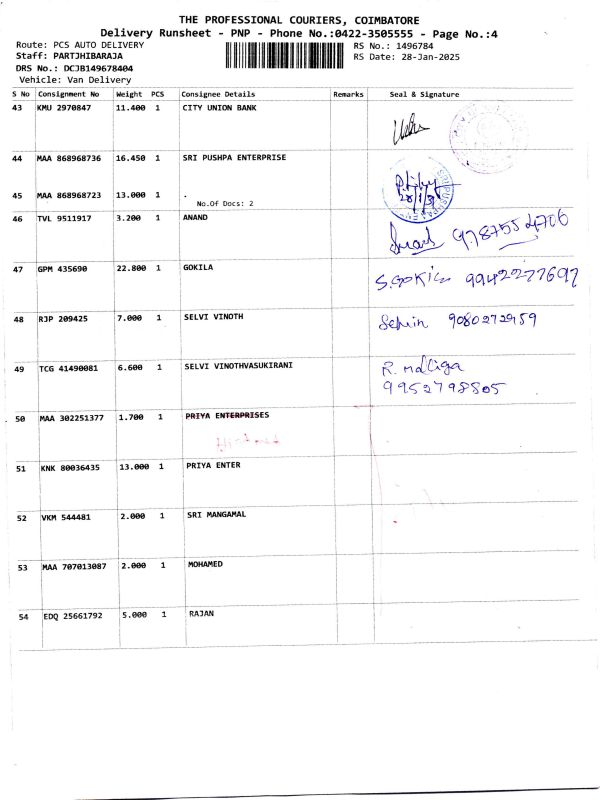 THE PROFESSIONAL COURIERS, COIMBATORE
Delivery Runsheet - PNP - Phone No.:0422-3505555 - Page No.:4
Route: PCS AUTO DELIVERY RS No.: 1496784
Staff: PARTJHIBARAJA RS Date: 28-Jan-2025
DRS No.: DCJB149678404
Vehicle: Van Delivery
S No Consignment No Weight PCS Consignee Details Remarks Seal & Signature
43 KMU 2970847 11.400 1 CITY UNION BANK
44 MAA 868968736 16.450 1 SRI PUSHPA ENTERPRISE
45 MAA 868968723 13.000 1 .
No.Of Docs: 2
46 TVL 9511917 3.200 1 ANAND
9787554706
47 GPM 435690 22.800 1 GOKILA
S.GOKila 9942277697
48 RJP 209425 7.000 1 SELVI VINOTH
9080272959
49 TCG 41490081 6.600 1 SELVI VINOTHVASUKIRANI
9952798805
50 MAA 302251377 1.700 1 PRIYA ENTERPRISES
51 KNK 80036435 13.000 1 PRIYA ENTER
52 VKM 544481 2.000 1 SRI MANGAMAL
53 MAA 707013087 2.000 1 MOHAMED
54 EDQ 25661792 5.000 1 RAJAN